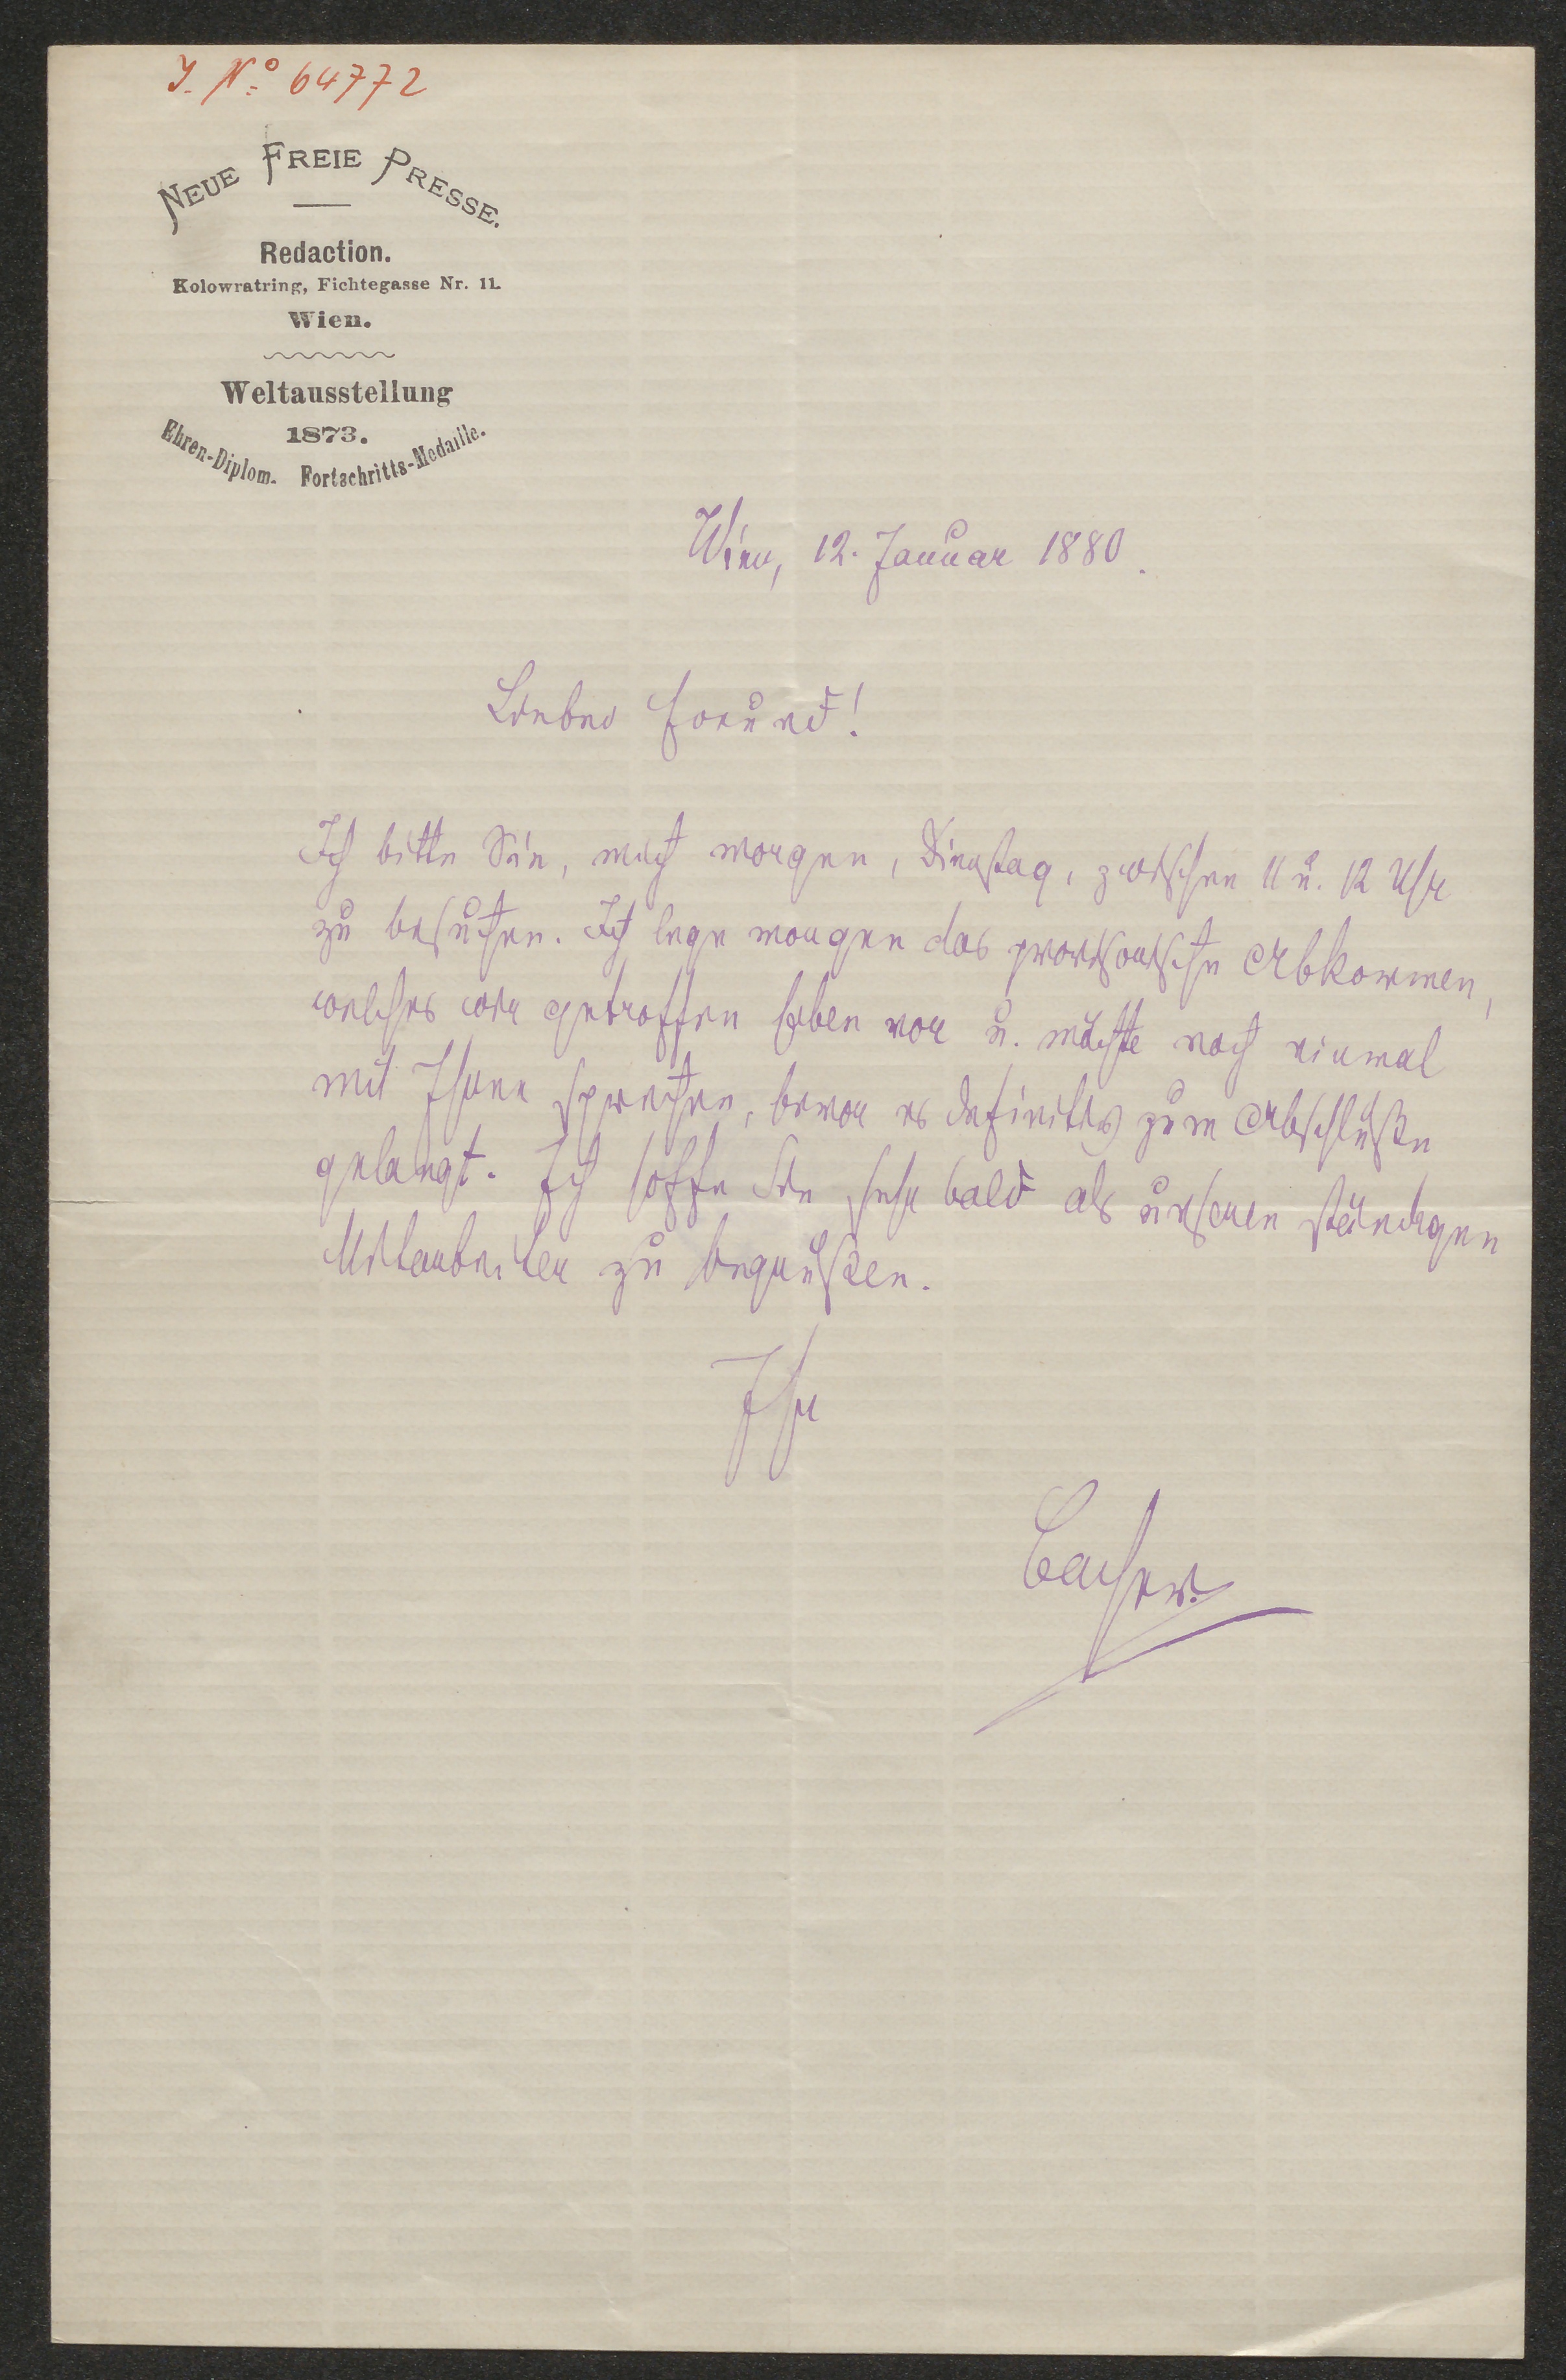 J. No. 64772
NEUE FREIE PRESSE.
Redaction.
Kolowratring, Fichtegasse Nr. 11.
Wien.
Weltausstellung
1873.
Ehren-Diplom. Fortschritts-Medaille.
Wien, 12. Januar 1880.
Lieber Freund!
Ich bitte Sie, mich morgen, Dienstag, zwischen 11 u. 12 Uhr
zu besuchen. Ich lege morgen das provisorische Abkommen,
welches wir getroffen haben vor u. möchte noch einmal
mit Ihnen sprechen, bevor es definitiv zum Abschluße
gelangt. Ich hoffe Sie sehr bald als unseren ständigen
Mitarbeiter zu begrüßen.
Ihr
Bacher.